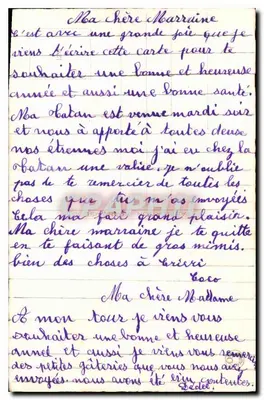 Ma chère Marraine
C'est avec une grande joie que je
viens t'écrire cette carte pour te
souhaiter une bonne et heureuse
année et aussi une bonne santé.
Ma tatan est venue mardi soir
et nous à apporté à toutes deux
nos étrennes moi j'ai eu chez la
tatan une valise. Je n'oublie
pas de te remercier de toutes les
choses que tu m'as envoyées
Cela ma fait grand plaisir.
Ma chère marraine je te quitte
en te faisant de gros mimis.
bien des choses à
Coco
Ma chère Madame
A mon tour je viens vous
souhaiter une bonne et heureuse
année et aussi je viens vous
des petites gâteries que vous nous avez
envoyés nous avons été bien contentes.
Dédée.